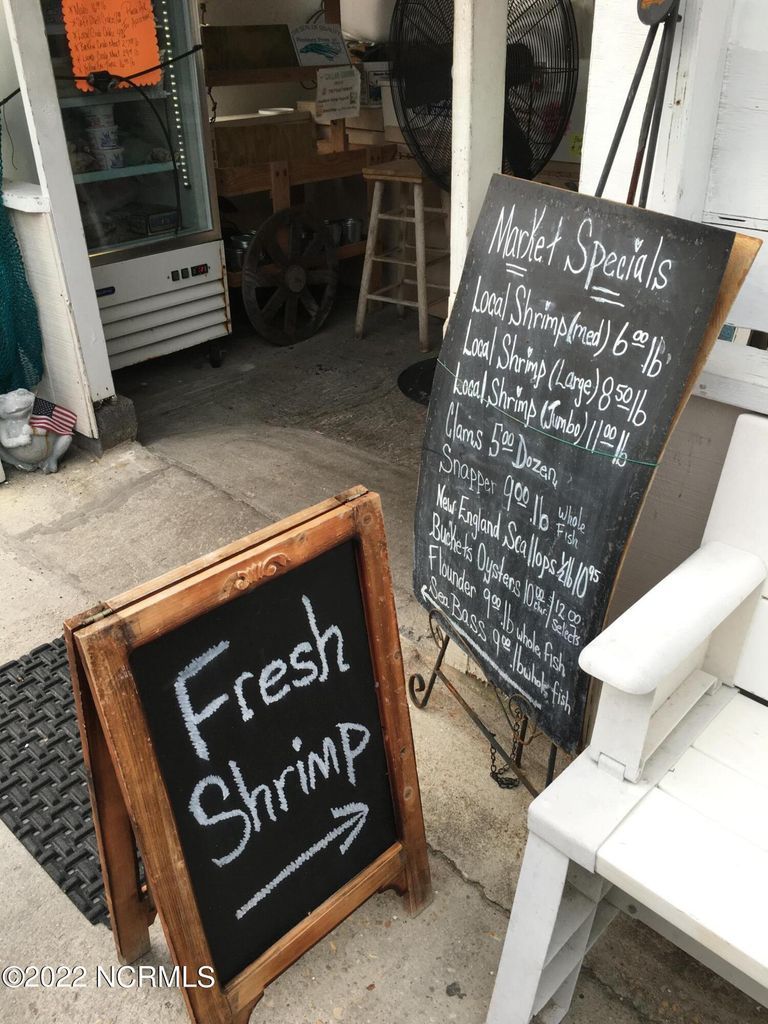 Market Specials
Local Shrimp (med) 6.00 lb
Local Shrimp (Large) 8.50 lb
Local Shrimp (Jumbo) 11.00 lb
Clams 5.00 Dozen
Snapper 9.00 lb Whole Fish
New England Scallops ½ lb 10.95
Buckets Oysters 10.00 /12.00 Selects
Flounder 9.00 lb whole fish
Sea Bass 9.00 lb whole fish
Fresh
Shrimp
©2022 NCRMLS